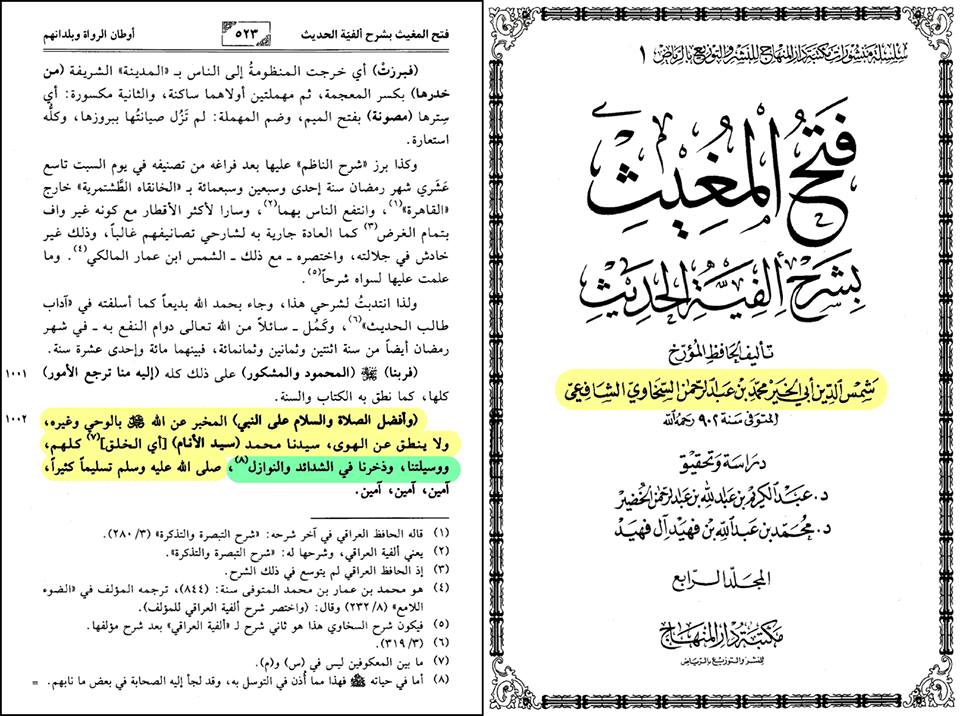 سلسلة منشورات مكتبة دار المنهاج للنشر والتوزيع بالرياض ١
فتح المغيث
بشرح ألفية الحديث
تأليف الحافظ المؤرخ
شمس الدين أبي الخير محمد بن عبد الرحمن السخاوي الشافعي
المتوفى سنة ٩٠٢ رحمه الله
دراسة وتحقيق
د. عبد الكريم بن عبد الله بن عبد الرحمن الخضير
د. محمد بن عبد الله بن فهيد آل فهيد
المجلد الرابع
مكتبة دار المنهاج
للنشر والتوزيع بالرياض
فتح المغيث بشرح ألفية الحديث
٥٢٣
أوطان الرواة وبلدانهم
(فبرزتْ) أي خرجت المنظومةُ إلى الناس بـ «المدينة» الشريفة (من
خدرها) بكسر المعجمة، ثم مهملتين أولاهما ساكنة، والثانية مكسورة: أي
سِترها (مصونة) بفتح الميم، وضم المهملة: لم تَزُل صيانتُها ببروزها، وكلُّه
استعارة.
وكذا برز «شرح الناظم» عليها بعد فراغه من تصنيفه في يوم السبت تاسع
عَشَري شهر رمضان سنة إحدى وسبعين وسبعمائة بـ «الخانقاه الطَّشتمرية» خارج
«القاهرة»(١)، وانتفع الناس بهما(٢)، وسارا لأكثر الأقطار مع كونه غير واف
بتمام الغرض(٣) كما العادة جارية به لشارحي تصانيفهم غالباً، وذلك غير
خادش في جلالته، واختصره ـ مع ذلك ـ الشمس ابن عمار المالكي(٤). وما
علمت عليها لسواه شرحاً(٥).
ولذا انتدبتُ لشرحي هذا، وجاء بحمد الله بديعاً كما أسلفته في «آداب
طالب الحديث»(٦)، وكَمُل ـ سائلاً من الله تعالى دوام النفع به ـ في شهر
رمضان أيضاً من سنة اثنتين وثمانين وثمانمائة، فبينهما مائة وإحدى عشرة سنة.
١٠٠١ (فربنا) ﷻ (المحمود والمشكور) على ذلك كله (إليه منا ترجع الأمور)
كلها، كما نطق به الكتاب والسنة.
١٠٠٢ (وأفضل الصلاة والسلام على النبي) المخبر عن الله ﷻ بالوحي وغيره،
ولا ينطق عن الهوى، سيدنا محمد (سيد الأنام) [أي الخلق](٧) كلهم،
ووسيلتنا، وذخرنا في الشدائد والنوازل(٨)، صلى الله عليه وسلم تسليماً كثيراً،
آمين، آمين، آمين.
(١) قاله الحافظ العراقي في آخر شرحه: «شرح التبصرة والتذكرة» (٣/ ٢٨٠).
(٢) يعني ألفية العراقي، وشرحها له: «شرح التبصرة والتذكرة».
(٣) إذ الحافظ العراقي لم يتوسع في ذلك الشرح.
(٤) هو محمد بن عمار بن محمد المتوفى سنة: (٨٤٤)، ترجمه المؤلف في «الضوء
اللامع» (٨/ ٢٣٢) وقال: (واختصر شرح ألفية العراقي للمؤلف).
(٥) فيكون شرح السخاوي هذا هو ثاني شرح لـ «ألفية العراقي» بعد شرح مؤلفها.
(٦) (٣/ ٣١٩).
(٧) ما بين المعكوفين ليس في (س) و(م).
(٨) أما في حياته ﷺ فهذا مما أُذن في التوسل به، وقد لجأ إليه الصحابة في بعض ما نابهم. =